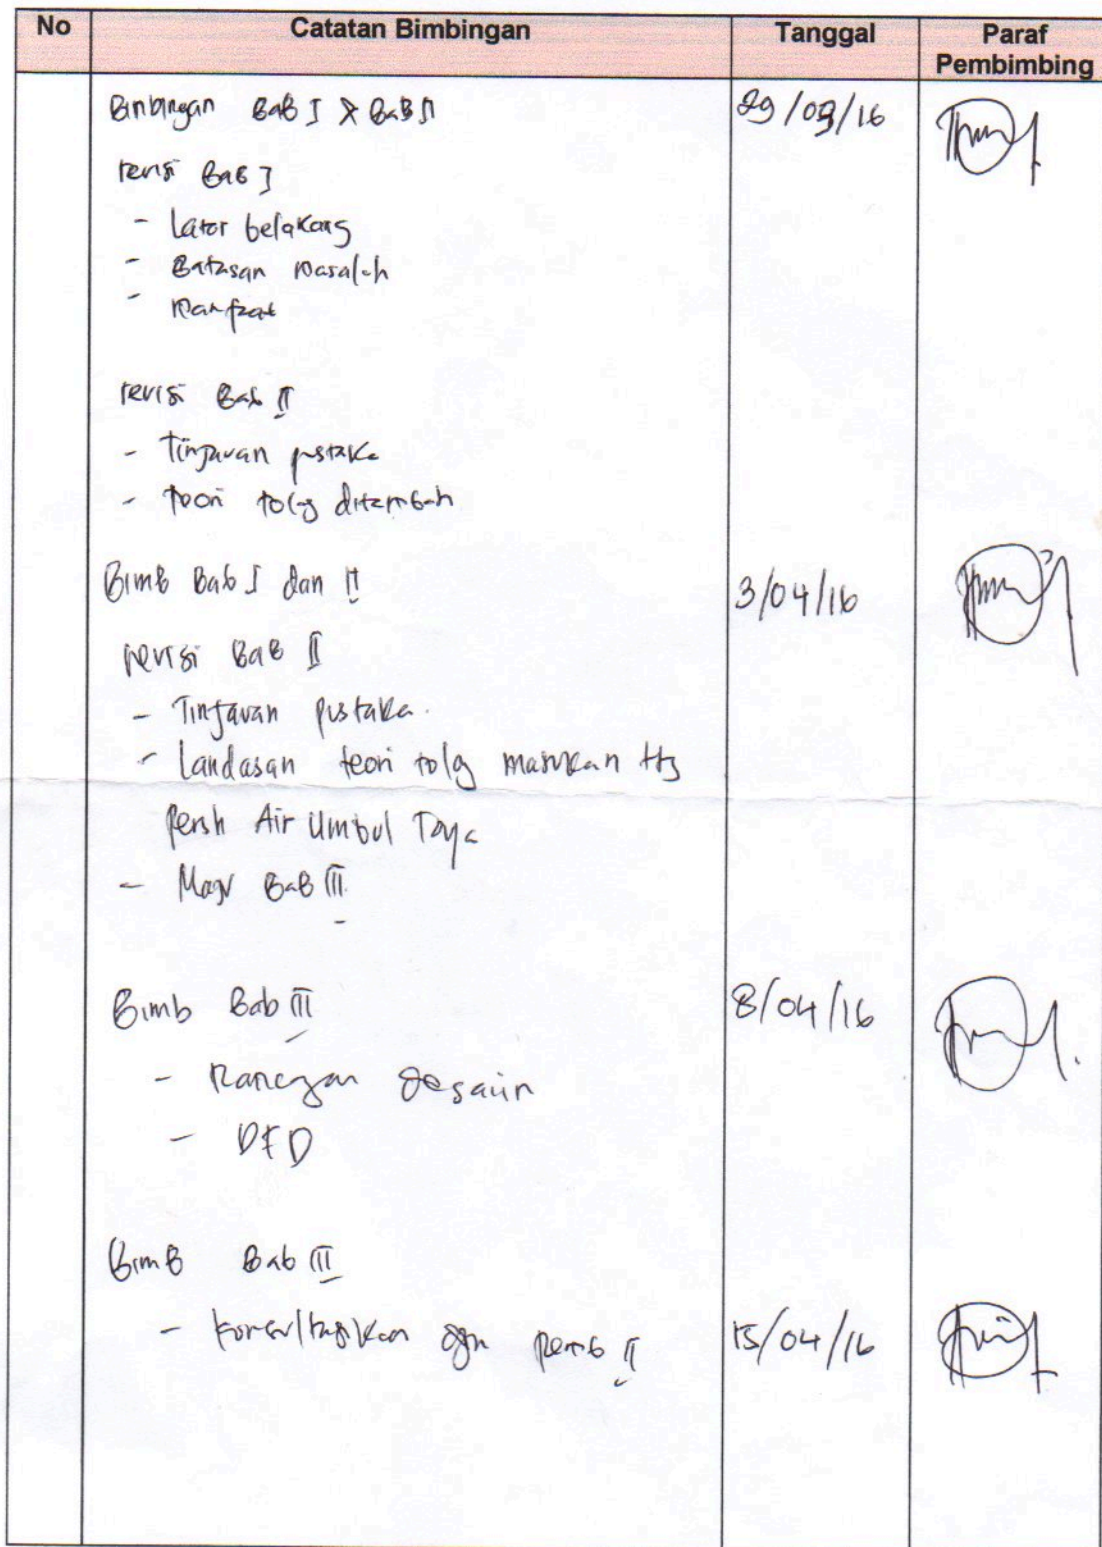 No Catatan Bimbingan Tanggal Paraf
Pembimbing
Bimbingan Bab I & Bab II 29/03/16
revisi Bab I
- Latar belakang
- Batasan masalah
- Manfaat
revisi Bab II
- Tinjauan pustaka
- teori tolg ditambah
Bimb Bab I dan II 3/04/16
revisi Bab II
- Tinjauan pustaka.
- Landasan teori tolg masukan ttg
Persh Air Umbul
- Maju Bab III
Bimb Bab III 8/04/16
- Rancangan desain
- DFD
Bimb Bab III
- Konsultasikan dgn Pemb II 15/04/16